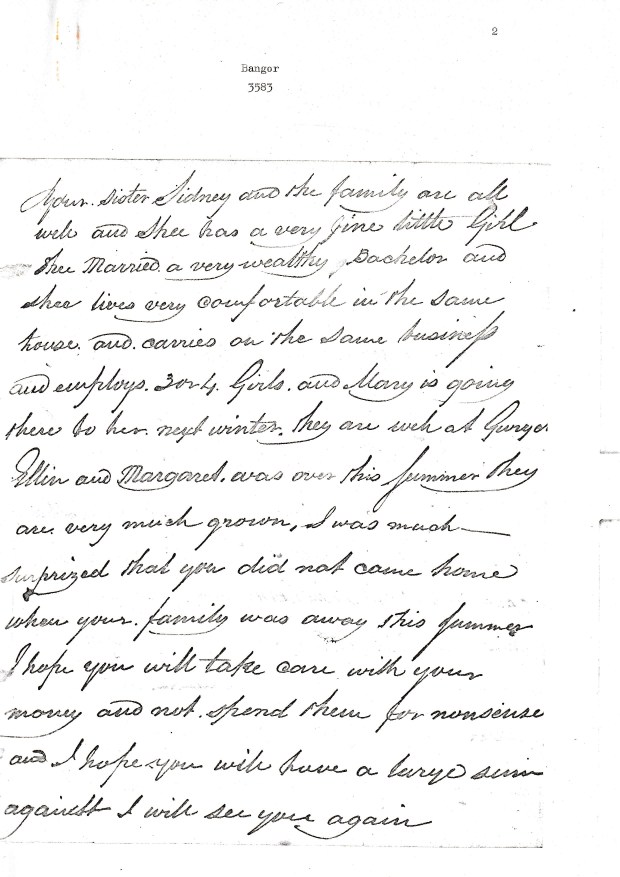 2
Bangor
3583
Your sister Sidney and the family are all
well and Shee has a very fine little Girl
Shee Married a very wealthy Bachelor and
shee lives very comfortable in the same
house and carries on the same business
and employs 3 or 4 Girls and Mary is going
there to her next winter. they are well at
Ellin and Margaret was over this summer they
are very much grown, I was much
surprized that you did not came home
when your family was away this summer
I hope you will take care with your
money and not spend them for nonsense
and I hope you will have a large sum
against I will see you again